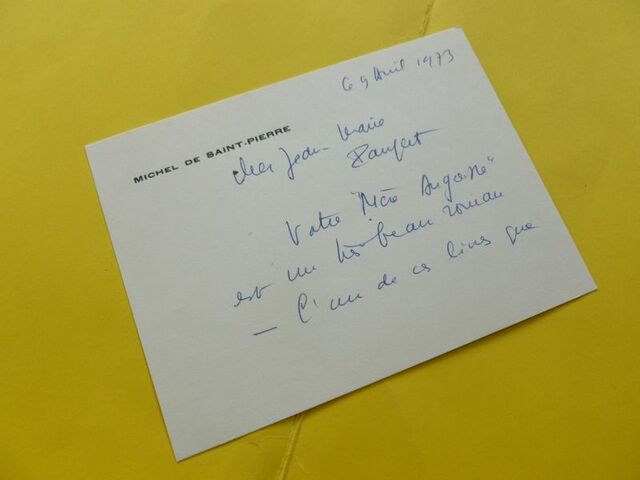 le 9 Avril 1973
MICHEL DE SAINT-PIERRE
Cher Jean-Marie
Paupert
Votre "Mère Angoisse"
est un très beau roman
— l'un de ces livres que